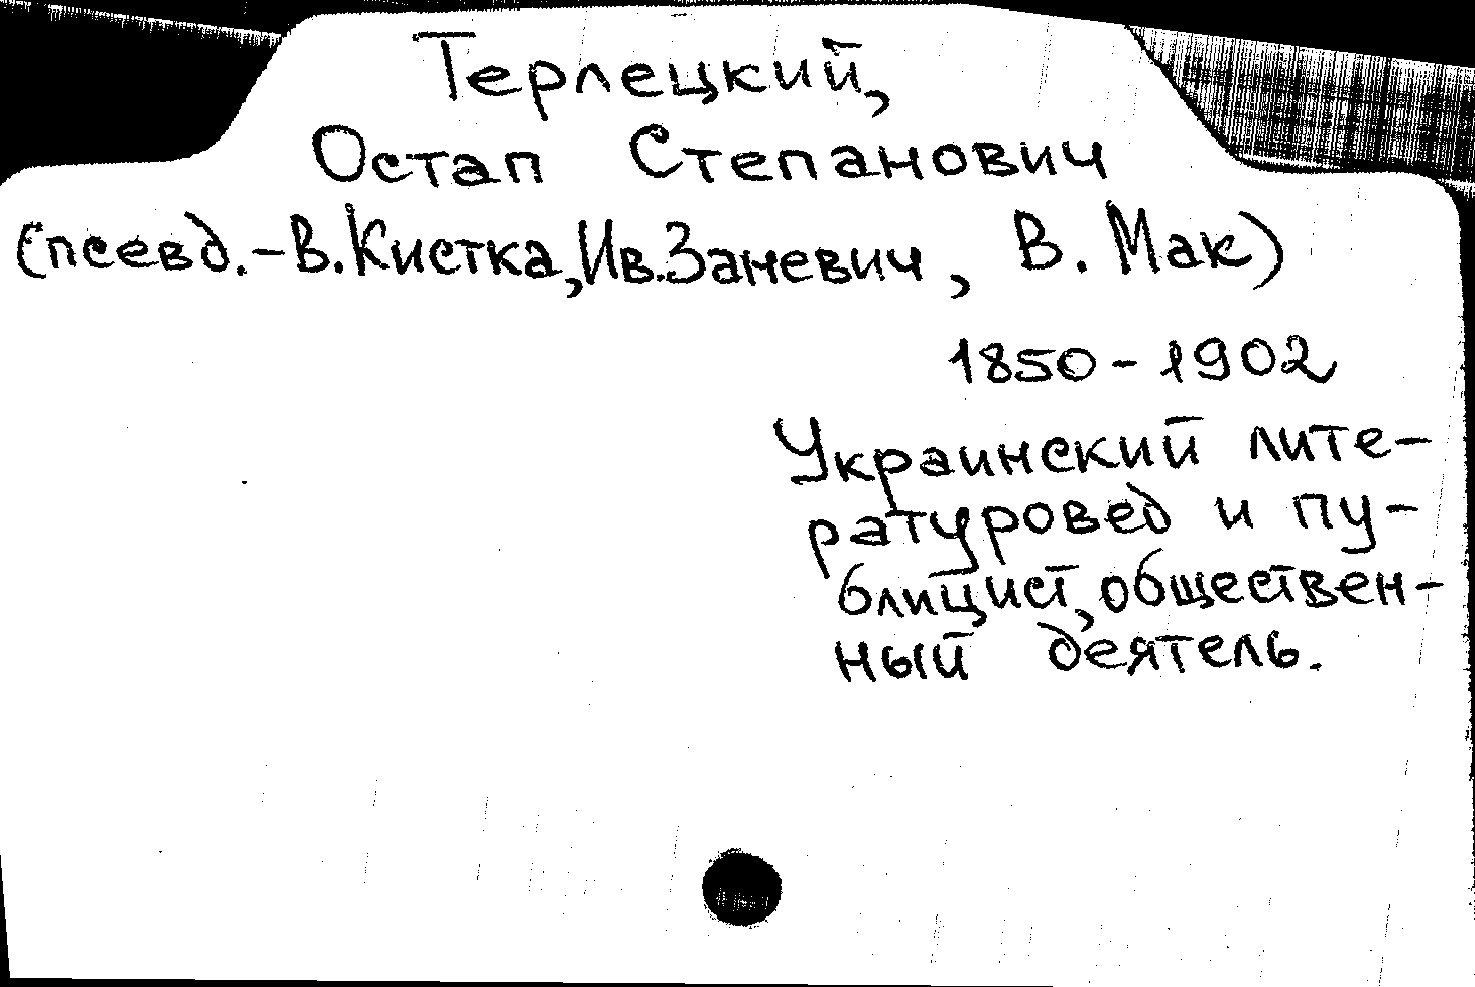 Терлецкий,
Остап Степанович
(псевд.-В.Кистка,Ив.Заневич, В. Мак)
1850-1902
Украинский лите-
ратуровед и пу-
блицист,обществен-
ный деятель.